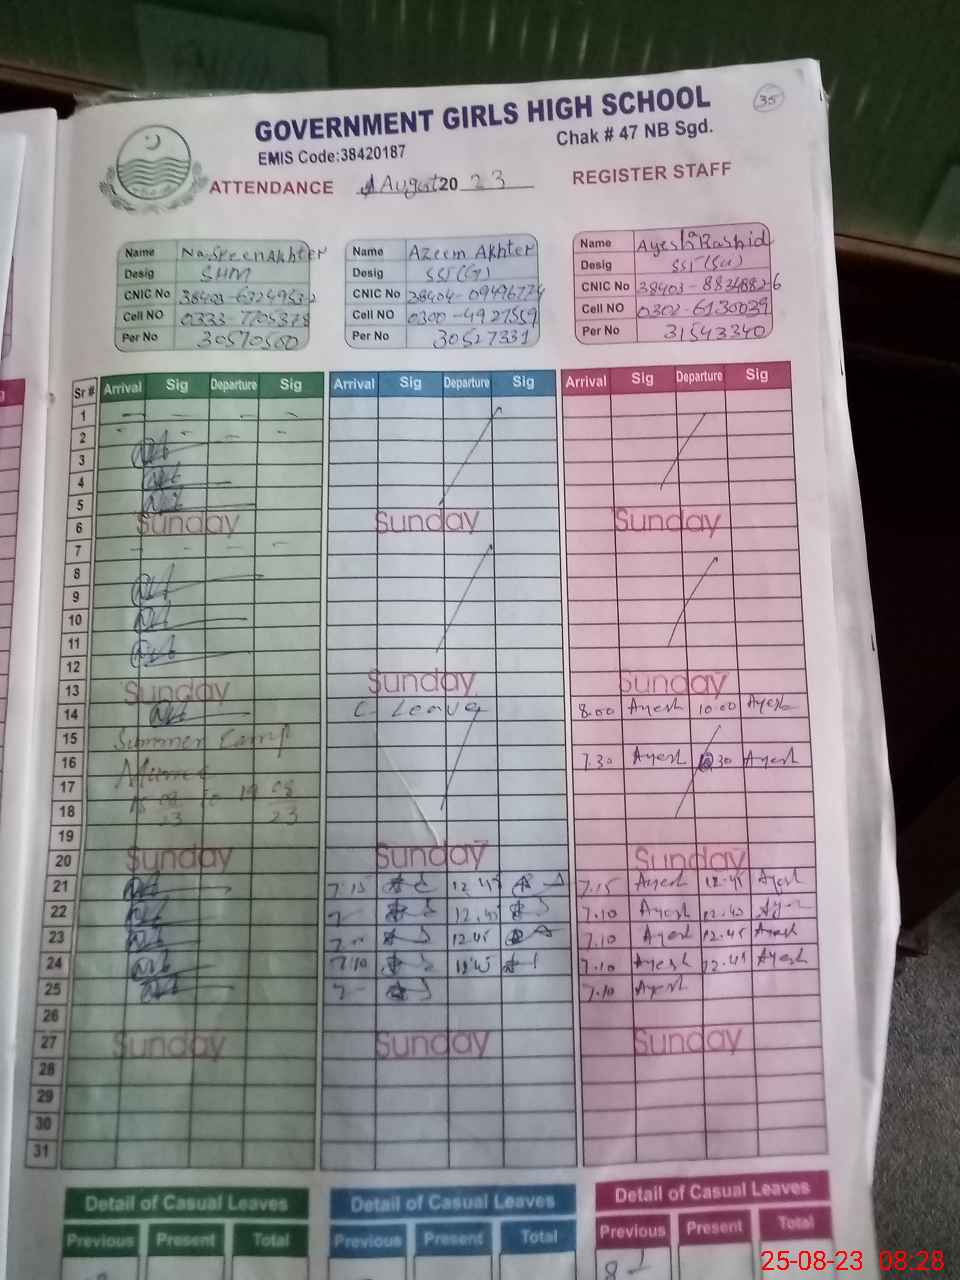 35
GOVERNMENT GIRLS HIGH SCHOOL
EMIS Code:38420187 Chak # 47 NB Sgd.
ATTENDANCE August 2023 REGISTER STAFF
Name Nasreen Akhter Name Azeem Akhter Name Ayesha Rashid
Desig SHM Desig SST(G) Desig
CNIC No CNIC No CNIC No
Cell NO Cell NO 0300-4927559 Cell NO 0302-6130039
Per No 30570560 Per No 30527331 Per No 31543340
Sr # Arrival Sig Departure Sig Arrival Sig Departure Sig Arrival Sig Departure Sig
1
2
3
4
5
6 Sunday Sunday Sunday
7
8
9
10
11
12
13 Sunday Sunday Sunday
14 C- Leave 8.00 Ayesh 10.00 Ayesh
15 Summer Camp
16 7.30 Ayesh 30 Ayesh
17 08 to 19 08
18 23 23
19
20 Sunday Sunday Sunday
21 7.15 12.45 7.15 Ayesh 12.45 Ayesh
22 12.45 7.10 Ayesh 12.45
23 12.45 7.10 Ayesh 12.45 Ayesh
24 7.10 12.45 7.10 Ayesh 12.45 Ayesh
25 7.10 Ayesh
26
27 Sunday Sunday Sunday
28
29
30
31
Detail of Casual Leaves Detail of Casual Leaves Detail of Casual Leaves
Previous Present Total Previous Present Total Previous Present Total
8
25-08-23 08:28